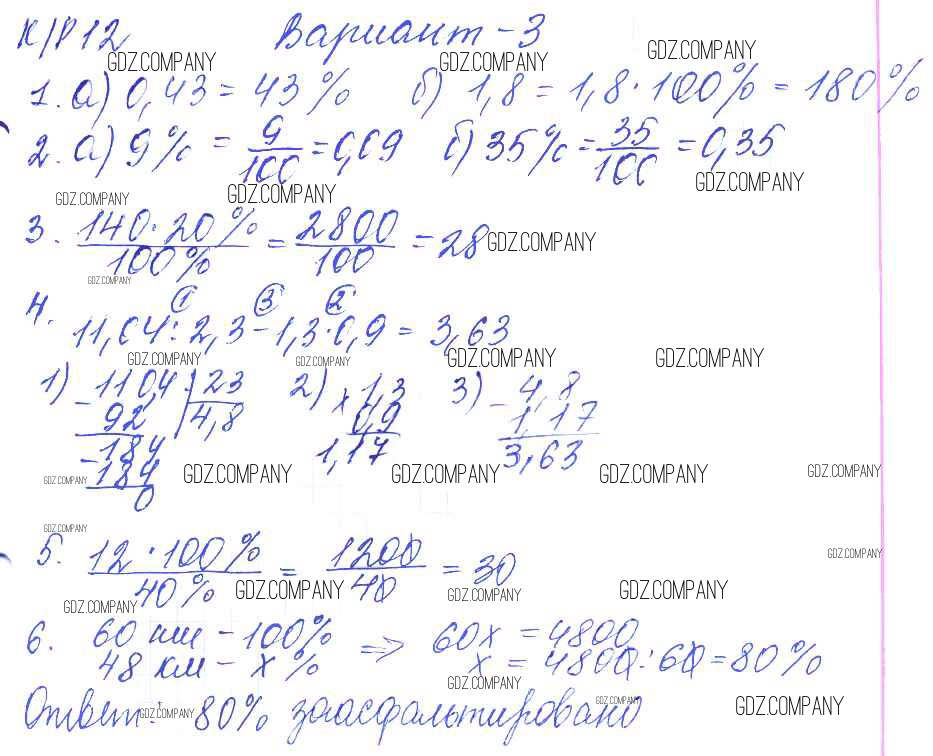 К/Р 12 Вариант - 3
GDZ.COMPANY GDZ.COMPANY GDZ.COMPANY
1. а) 0,43 = 43% б) 1,8 = 1,8 · 100% = 180%
2. а) 9% = 9/100 = 0,09 б) 35% = 35/100 = 0,35
GDZ.COMPANY GDZ.COMPANY GDZ.COMPANY
3. 140 · 20% / 100% = 2800/100 = 28 GDZ.COMPANY
GDZ.COMPANY
4. ① ③ ②
11,04 : 2,3 - 1,3 · 0,9 = 3,63
GDZ.COMPANY GDZ.COMPANY GDZ.COMPANY GDZ.COMPANY
1) 110,4 | 23 2) 1,3 3) 4,8
- 92 | 4,8 × 0,9 - 1,17
- 184 1,17 3,63
184
0
GDZ.COMPANY GDZ.COMPANY GDZ.COMPANY GDZ.COMPANY GDZ.COMPANY
GDZ.COMPANY
5. 12 · 100% / 40% = 1200/40 = 30
GDZ.COMPANY
GDZ.COMPANY GDZ.COMPANY GDZ.COMPANY GDZ.COMPANY
6. 60 км - 100% => 60x = 4800
48 км - x% x = 4800 : 60 = 80%
GDZ.COMPANY
Ответ: 80% заасфальтировано
GDZ.COMPANY GDZ.COMPANY GDZ.COMPANY